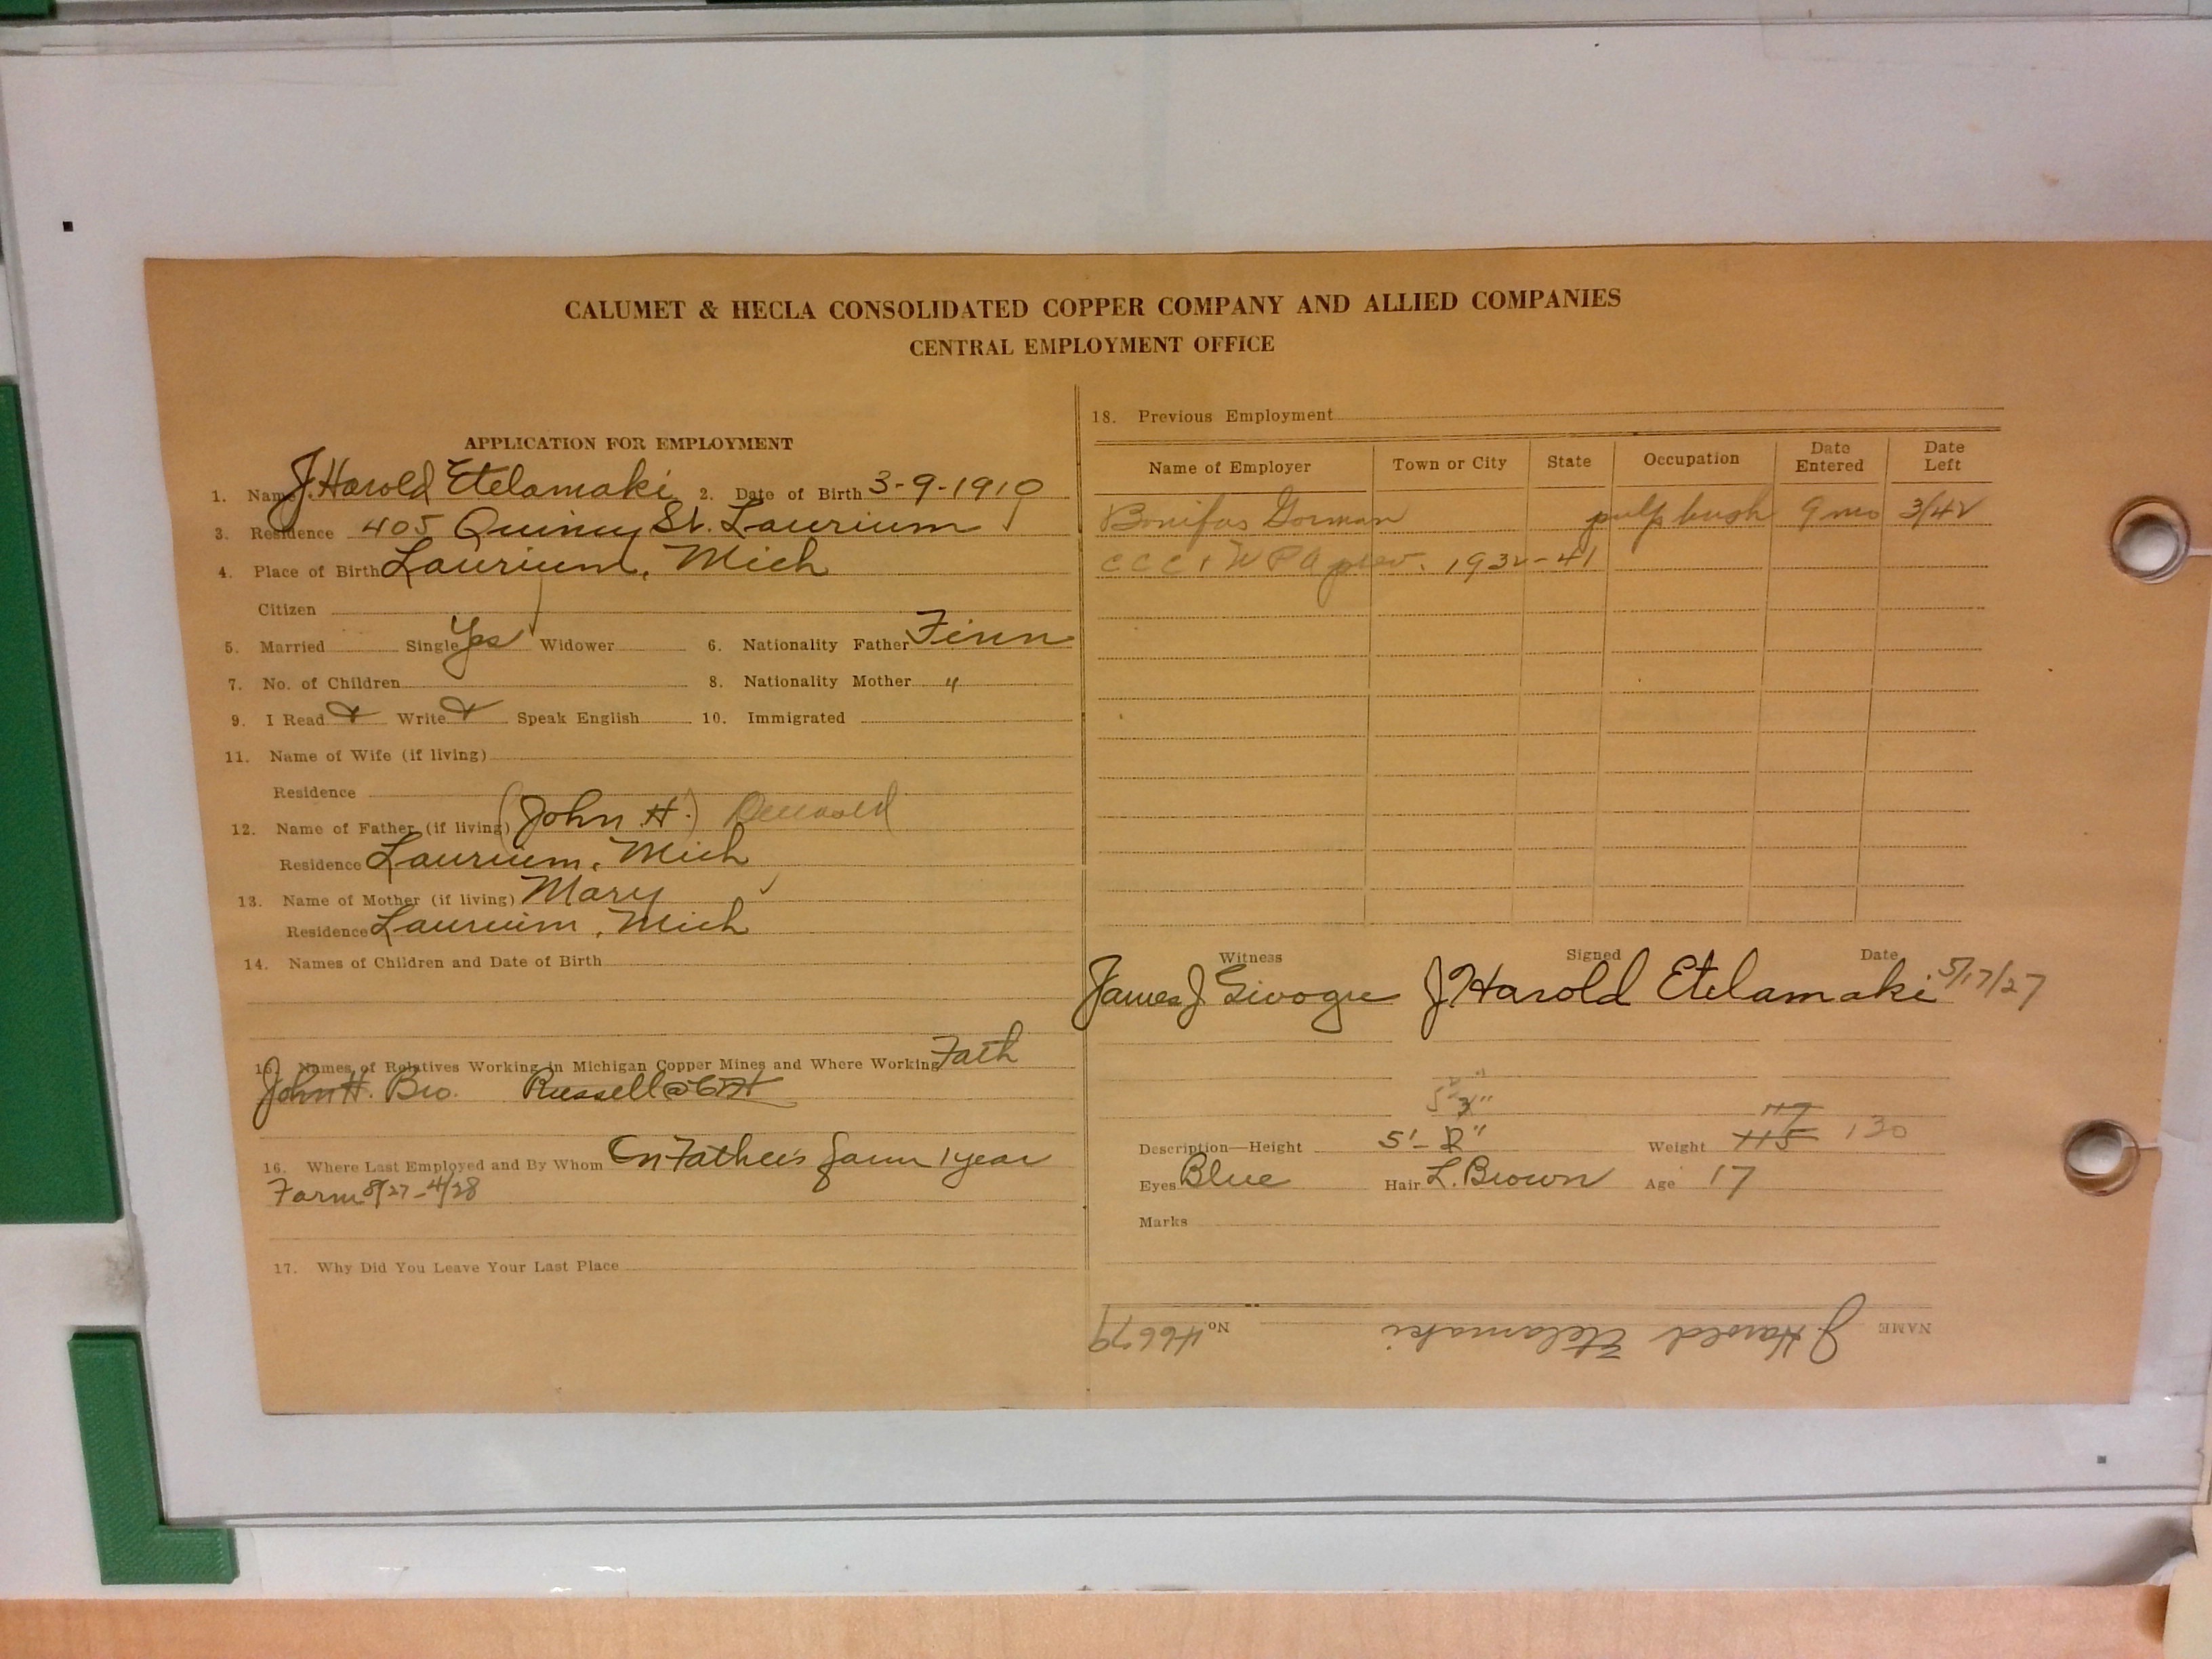 CALUMET & HECLA CONSOLIDATED COPPER COMPANY AND ALLIED COMPANIES
CENTRAL EMPLOYMENT OFFICE
APPLICATION FOR EMPLOYMENT
1. Name J. Harold Etelamaki 2. Date of Birth 3-9-1910
3. Residence 405 Quincy St. Laurium
4. Place of Birth Laurium, Mich
Citizen
5. Married Single Yes Widower 6. Nationality Father Finn
7. No. of Children 8. Nationality Mother "
9. I Read Write Speak English 10. Immigrated
11. Name of Wife (if living)
Residence
12. Name of Father (if living) (John H.) Deceased
Residence Laurium, Mich
13. Name of Mother (if living) Mary
Residence Laurium, Mich
14. Names of Children and Date of Birth
15. Names of Relatives Working in Michigan Copper Mines and Where Working Fath
John H. Bro. Russell @ C&H
16. Where Last Employed and By Whom On Father's farm 1 year
Farm 8/27-4/28
17. Why Did You Leave Your Last Place
18. Previous Employment
Name of Employer Town or City State Occupation Date Entered Date Left
Bonifas Gorman pulp bush 9 mo 3/42
CCC + WPA prev. 1932-41
Witness Signed Date
James J. J Harold Etelamaki 5/17/27
5' 3"
117
Description—Height 5'-2" Weight 115 130
Eyes Blue Hair L. Brown Age 17
Marks
NAME J. Harold Etelamaki No. 46679